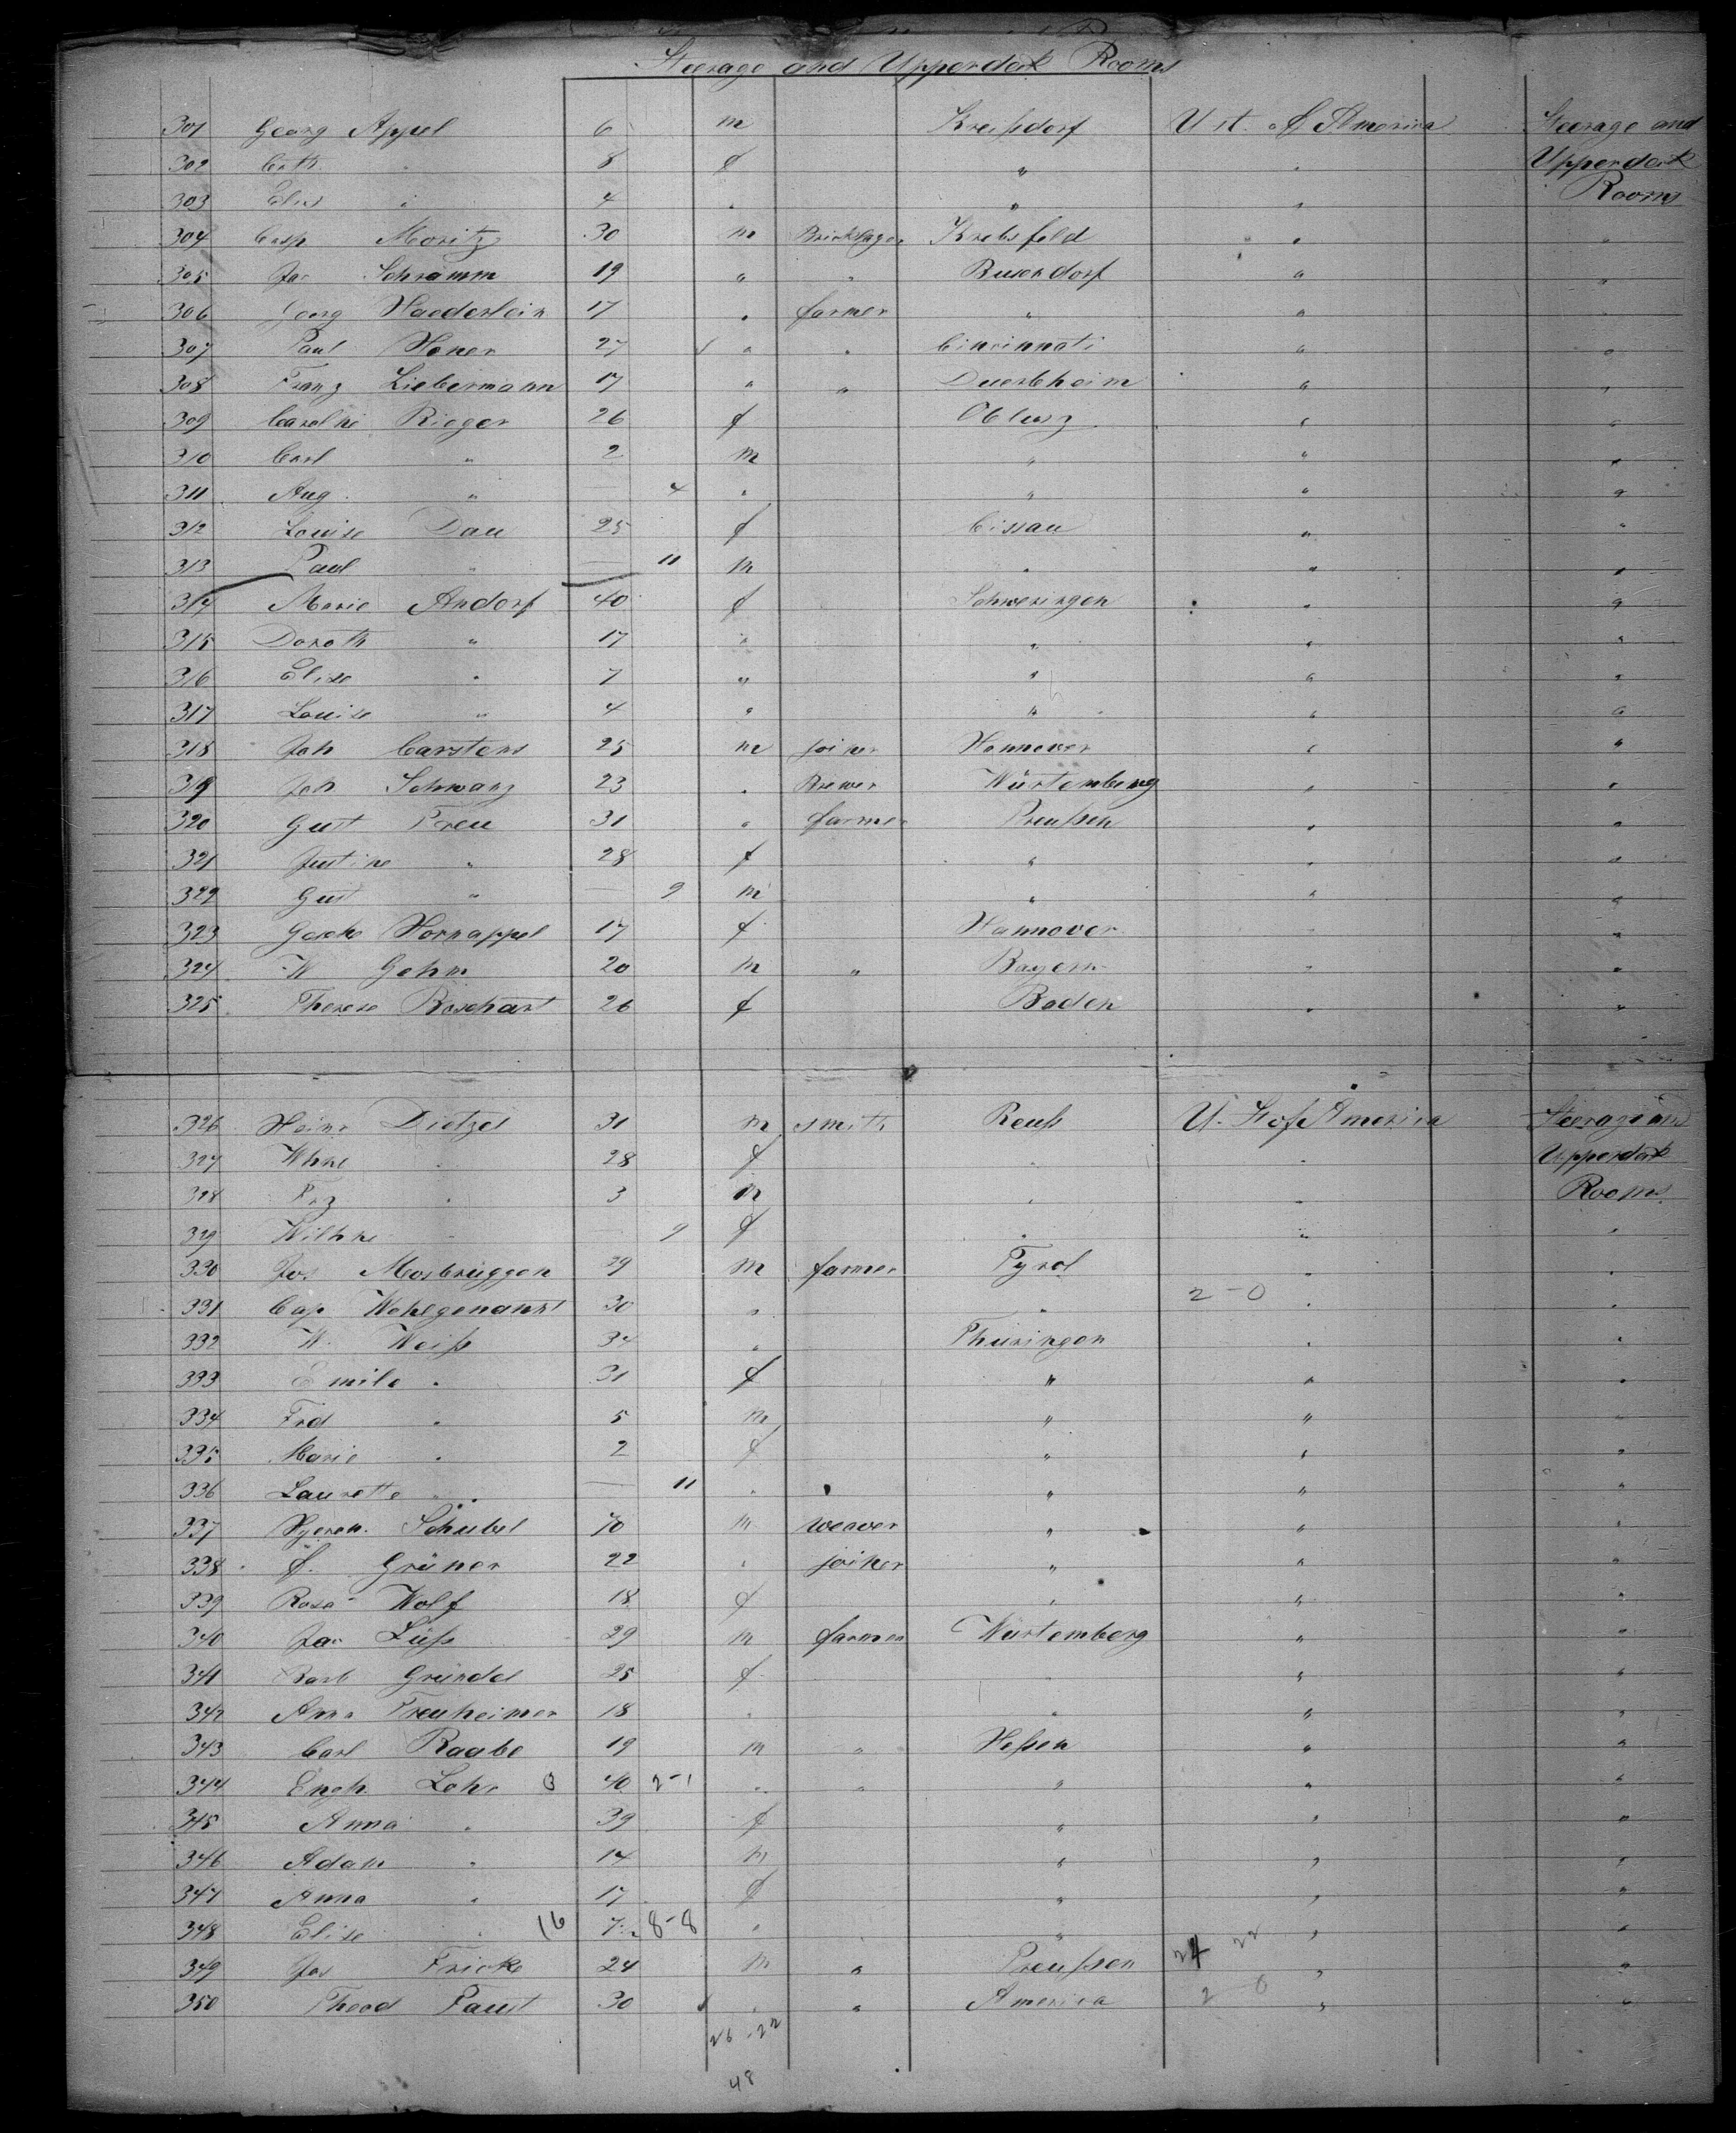 Steerage and Upperdeck Rooms
301 Georg Appel 6 m Kreißdorf U. St. of America Steerage and
302 Cath. " 8 f " " Upperdeck
303 Elis " 4 " " " Rooms
304 Casp Moritz 30 m Bricklayer Krebsfeld " "
305 Jac Schramm 19 " " Busendorf " "
306 Georg Haederlein 17 " farmer " " "
307 Paul Honer 27 " " Cincinnati " "
308 Franz Liebermann 17 " " Duerbheim " "
309 Caroline Rieger 26 f " "
310 Carl " 2 m " " "
311 Aug. " — 4 " " " "
312 Louise Dau 25 f Cissau " "
313 Paul " — 11 m " " "
314 Marie Andorf 40 f Schweringen " "
315 Doroth " 17 " " " "
316 Elise " 7 " " " "
317 Louise " 4 " " " "
318 Joh Carstens 25 m joiner Hannover " "
319 Joh Schwarz 23 " Brewer Würtemberg " "
320 Gust Preu 31 " farmer Preußen " "
321 Justine " 28 f " " "
322 Gust " — 9 m " " "
323 Gesche Hornappel 17 f Hannover " "
324 W Gehm 20 m " Bayern " "
325 Therese Boschart 26 f Baden " "
326 Heinr Dietzel 31 m smith Reuß U. St of America Steerage and
327 Whne " 28 f " " Upperdeck
328 Frz " 3 m " " Rooms
329 Wilhne " — 9 f " " "
330 Jos Mosbruggen 29 m farmer Tyrol " "
331 Cap Wohlgenannt 30 " " 2-0 " "
332 W. Weiß 34 " Thüringen " "
333 Emile " 31 f " " "
334 Frd " 5 m " " "
335 Marie " 2 f " " "
336 Laurette " — 11 " " " "
337 Schubel 70 m weaver " " "
338 F. Grüner 22 " joiner " " "
339 Rosa Wolf 18 f " " "
340 Jac Lüß 29 m farmer Würtemberg " "
341 Barb Gründel 25 f " " "
342 Anna Freuheimer 18 " " " "
343 Carl Raabe 19 m " Heßen " "
344 Engh. Lohr 3 40 2-1 " " " " "
345 Anna " 39 f " " "
346 Adam " 14 m " " "
347 Anna " 17 f " " "
348 Elise " 16 7 8-8 " " " "
349 Jos Fricke 24 m " Preußen 24 22 " "
350 Theod Faust 30 " " America 2-0 " "
26-22
48